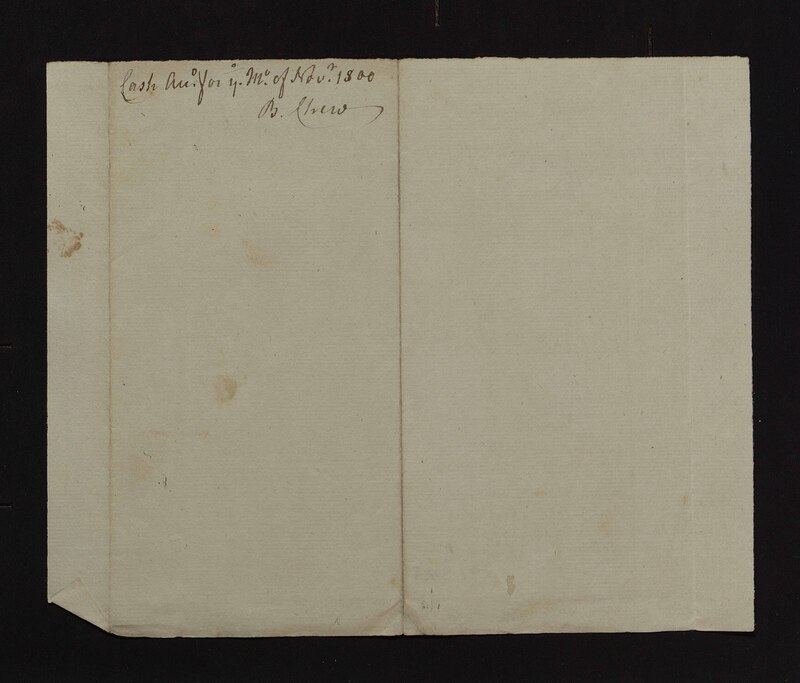 Cash Acct. for ye. Mo. of Novr. 1800
B. Chew